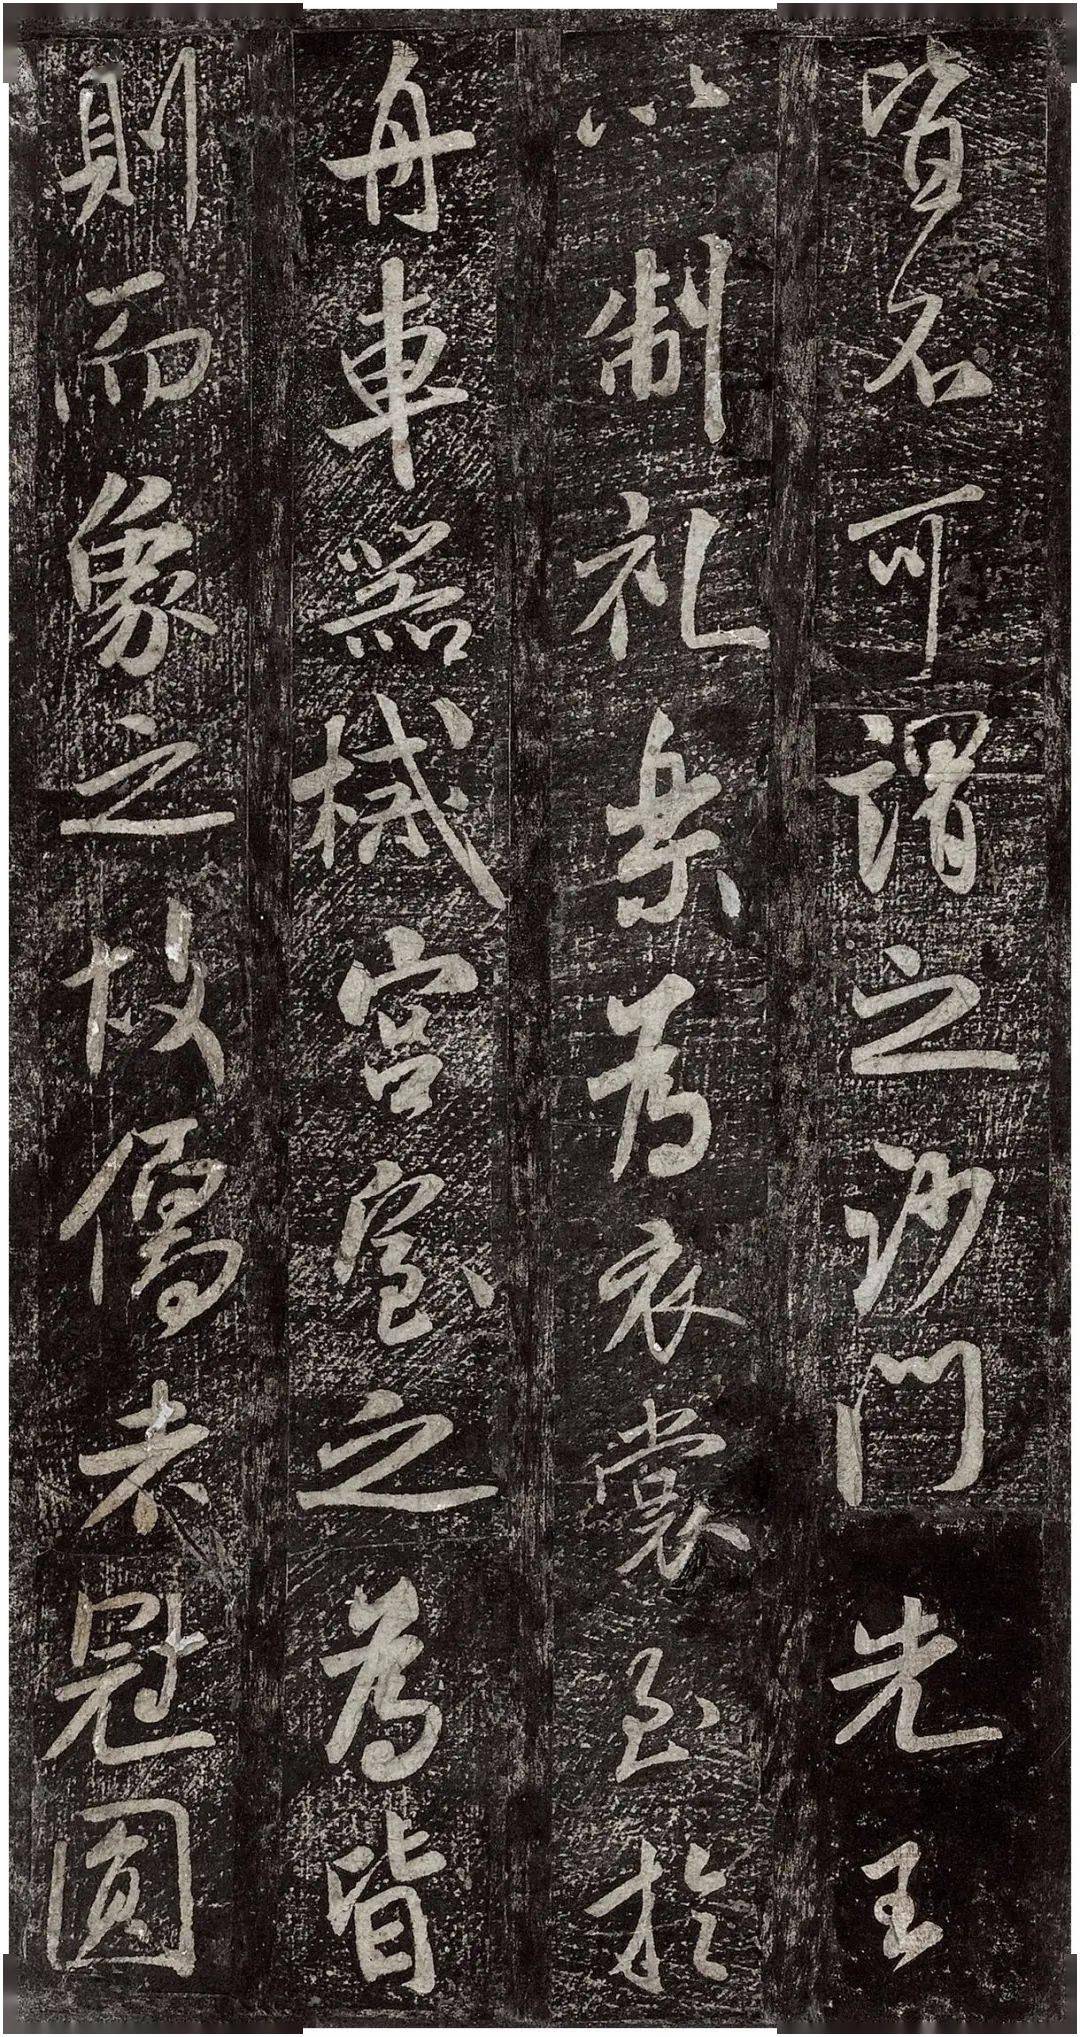 皆名可謂之沙門先王
以制礼樂為衣裳至於
舟車器械宮室之為皆
則而象之故儒者冠圓